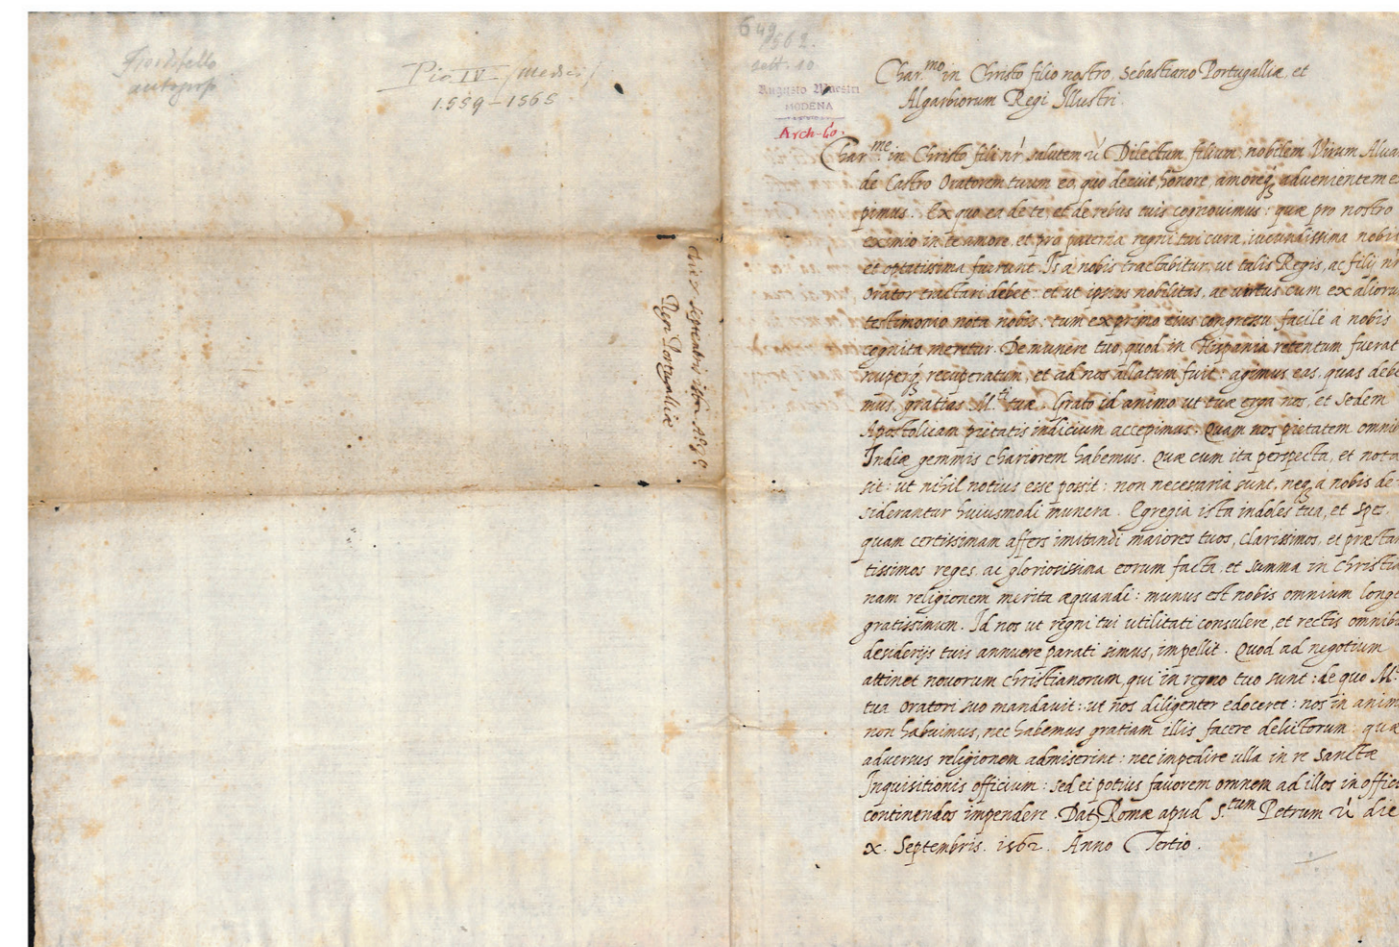 Fiordibello
autogr
Pio IV - (Medici)
1559 - 1565
Die x Septembris 1562 Aº 3º
Regi Portugalliæ
649
1562.
sett. 10
Augusto Maestri
MODENA
Arch-Co.
Char.mo in Christo filio nostro, Sebastiano Portugalliæ et
Algarbiorum Regi Illustri.
Charme in Christo fili nr̃ salutem Dilectum filium, nobilem Virum Alua
de Castro Oratorem tuum eo, quo decuit, honore, amoreq, advenientem e
pimus. Ex quo ea de te, et de rebus tuis cognovimus: quæ pro nostro
eximio in te amore, et pro paterna regni tui cura, iucundissima nobis
et optatissima fuerunt. Is a nobis tractabitur ut talis Regis, ac filij nr̃
Orator tractari debet: et ut ipsius nobilitas, ac virtus cum ex alioru
testimonio nota nobis, tum ex primo eius congressu facile a nobis
cognita meretur. De munere tuo, quod in Hispania retentum fuerat
nuperq, recuperatum, et ad nos allatum fuit: agimus eas, quas debe
mus, gratias M.ti tuæ. Grato id animo ut tuæ erga nos, et Sedem
Apostolicam pietatis indicium accepimus: Quam nos pietatem omni
Indiæ gemmis chariorem habemus. Quæ cum ita perspecta, et nota
sit: ut nihil notius esse possit: non necessaria sunt, neq, a nobis de
siderantur huiusmodi munera. Egregia ista indoles tua, et spes
quam certissimam affers imitandi maiores tuos, clarissimos, et præstan
tissimos reges, ac gloriosissima eorum facta, et summa in Christia
nam religionem merita æquandi: munus est nobis omnium longe
gratissimum. Id nos ut regni tui utilitati consulere, et rectis omnibu
desiderijs tuis annuere parati simus, impellit. Quod ad negotium
attinet novorum christianorum, qui in regno tuo sunt: de quo M.
tua Oratori suo mandavit: ut nos diligenter edoceret: nos in anim
non habuimus, nec habemus gratiam illis facere delictorum: quæ
adversus religionem admiserint: nec impedire ulla in re Sanctæ
Inquisitionis officium: sed ei potius favorem omnem ad illos in offici
continendos impendere. Dat. Romæ apud S.tum Petrum die
x. Septembris. 1562. Anno Tertio.